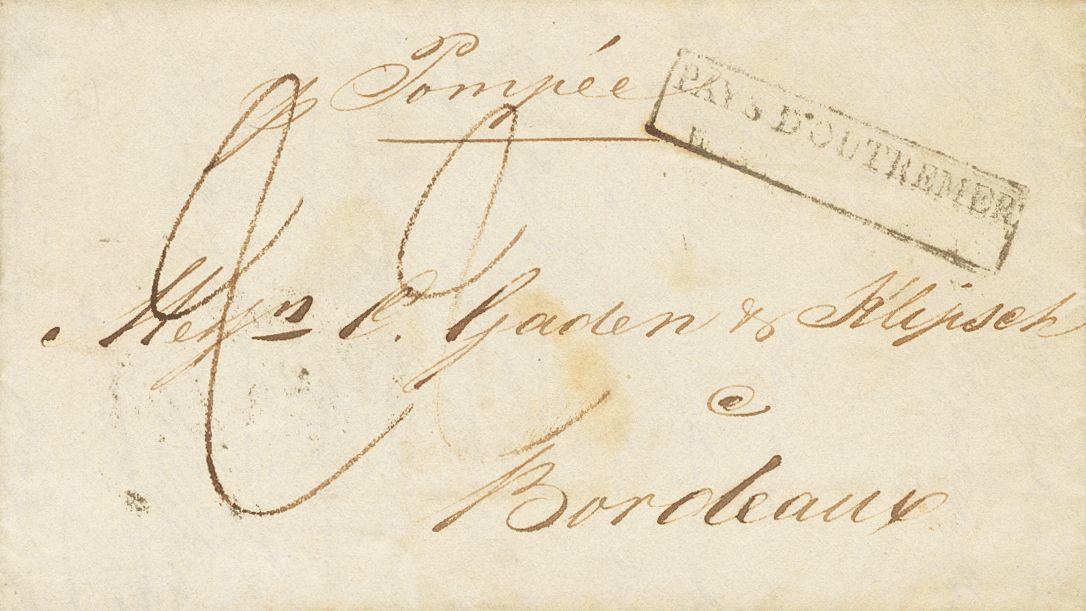 p Pompée
PAYS D'OUTREMER
Heyn C. Gaden & Klipsch
a
Bordeaux